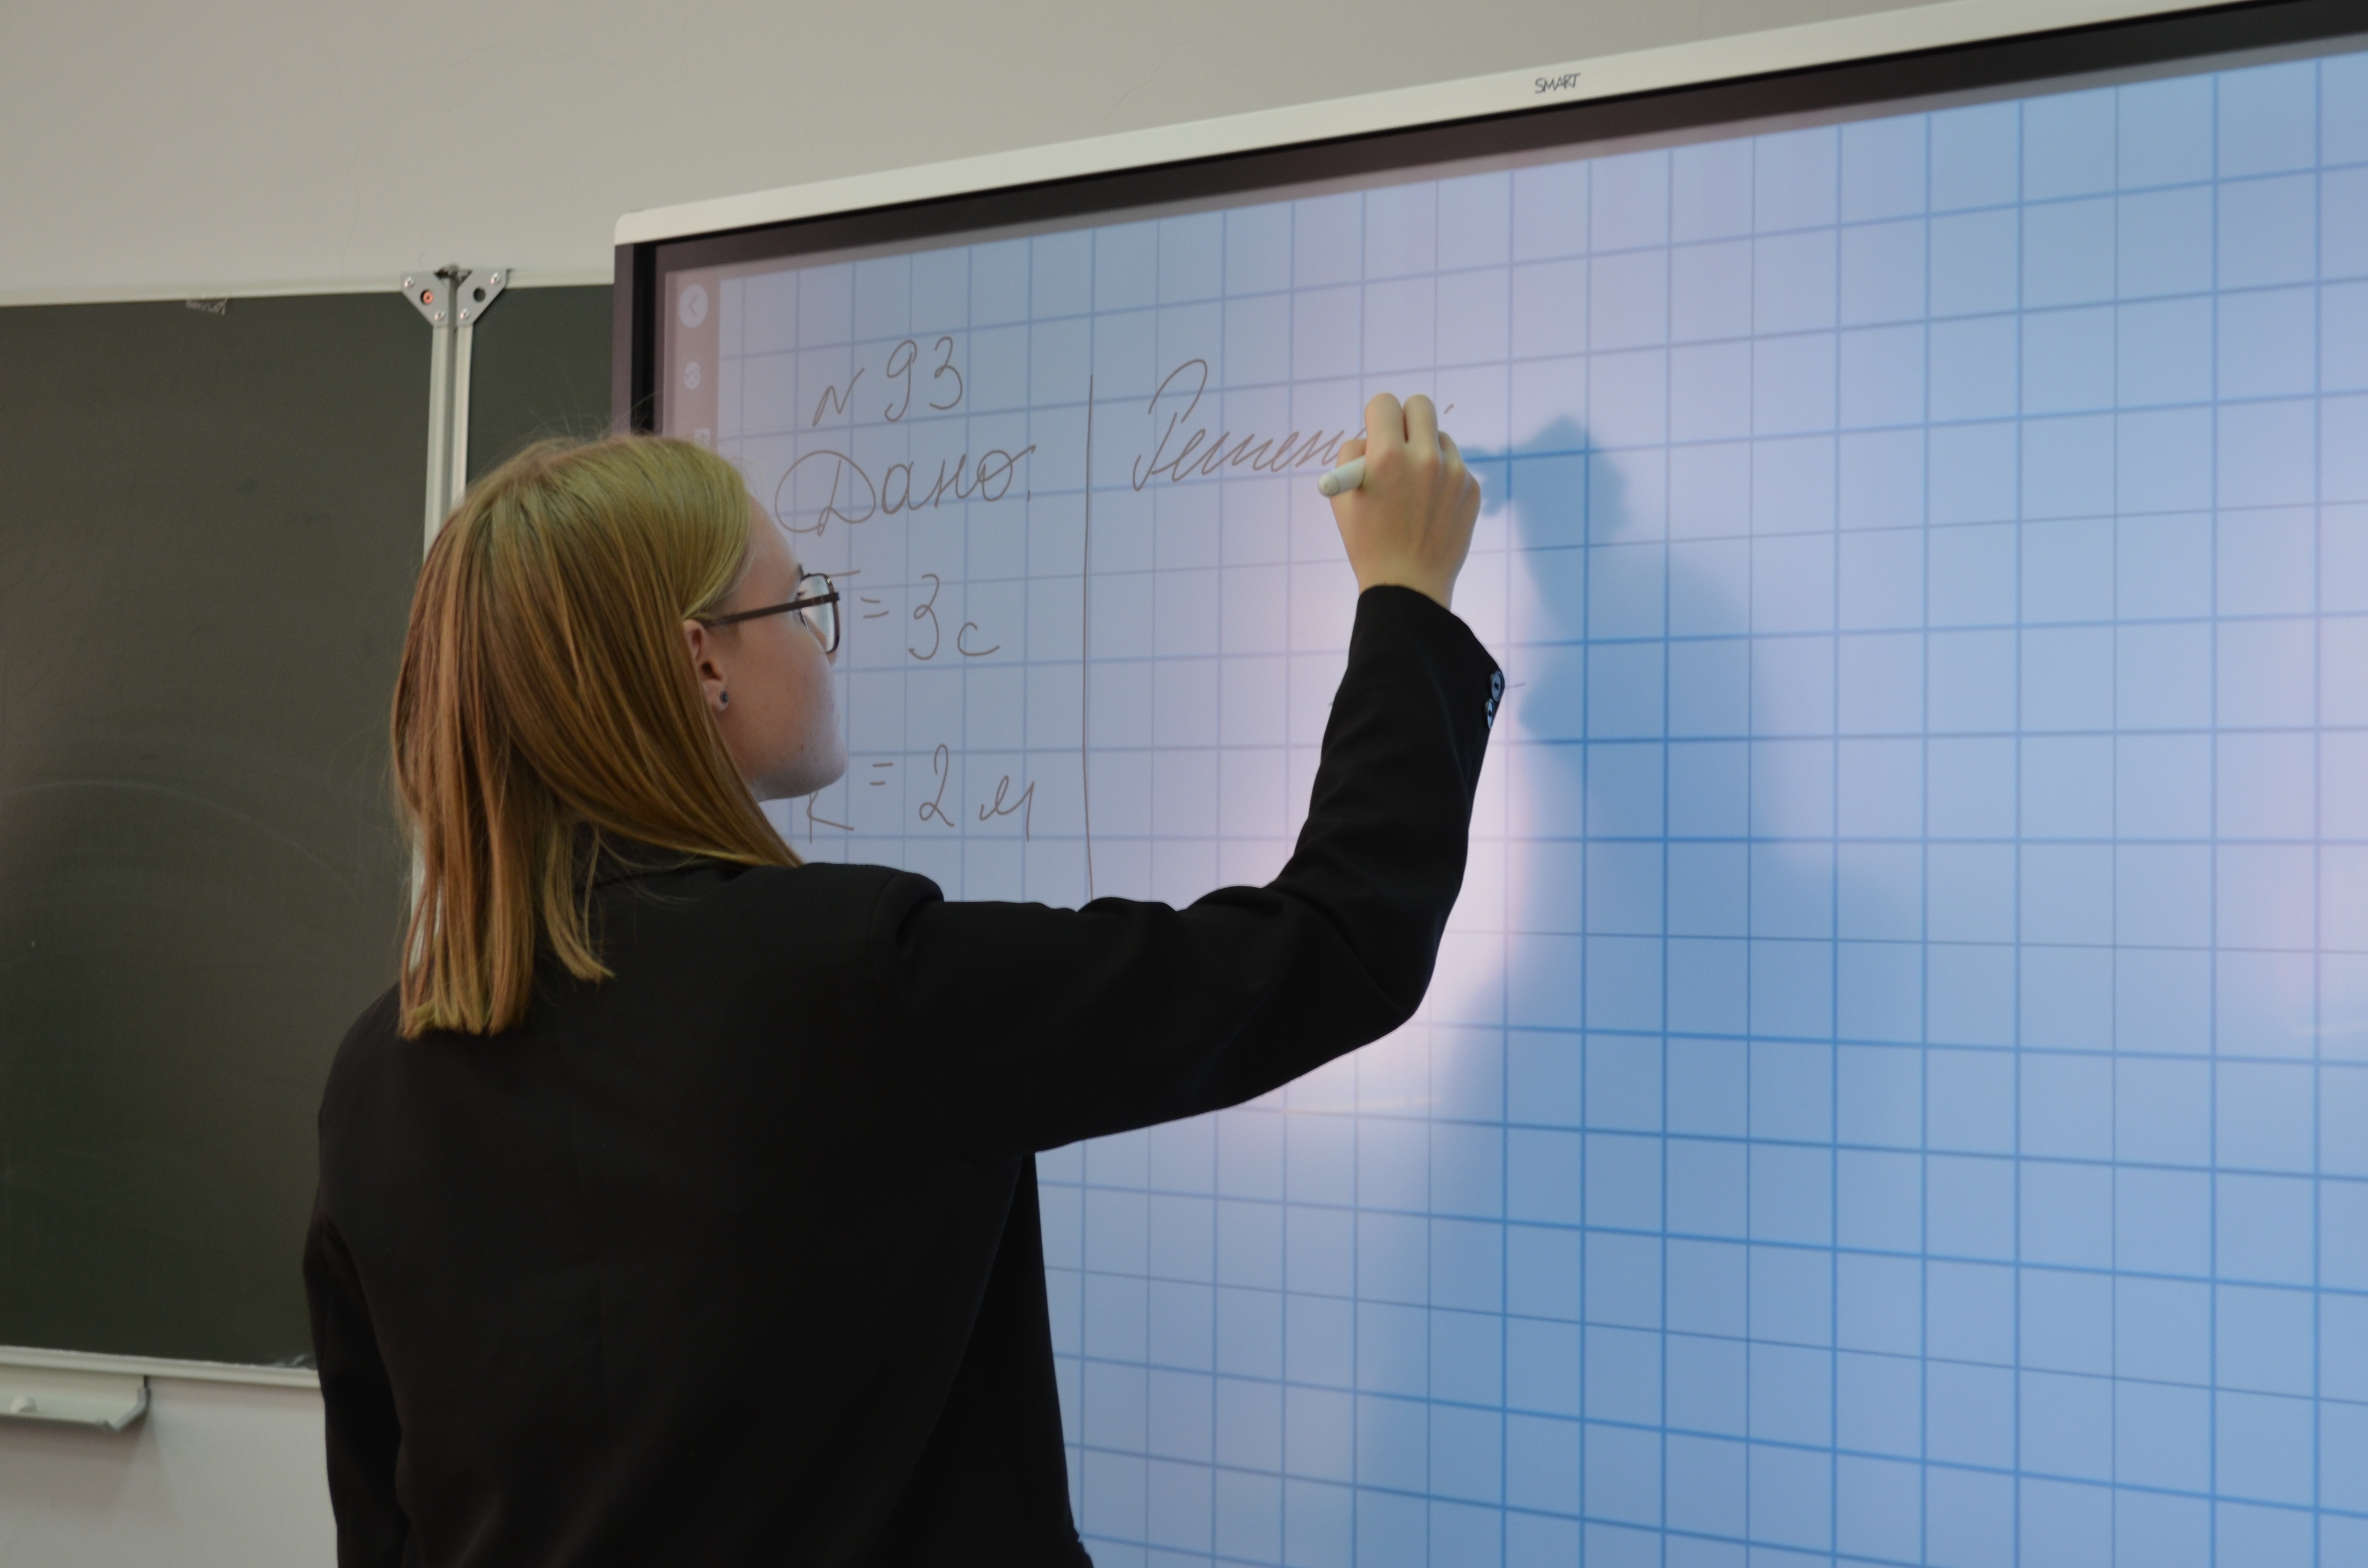 SMART
N 93
Дано:
= 3 с
= 2 м
Решен